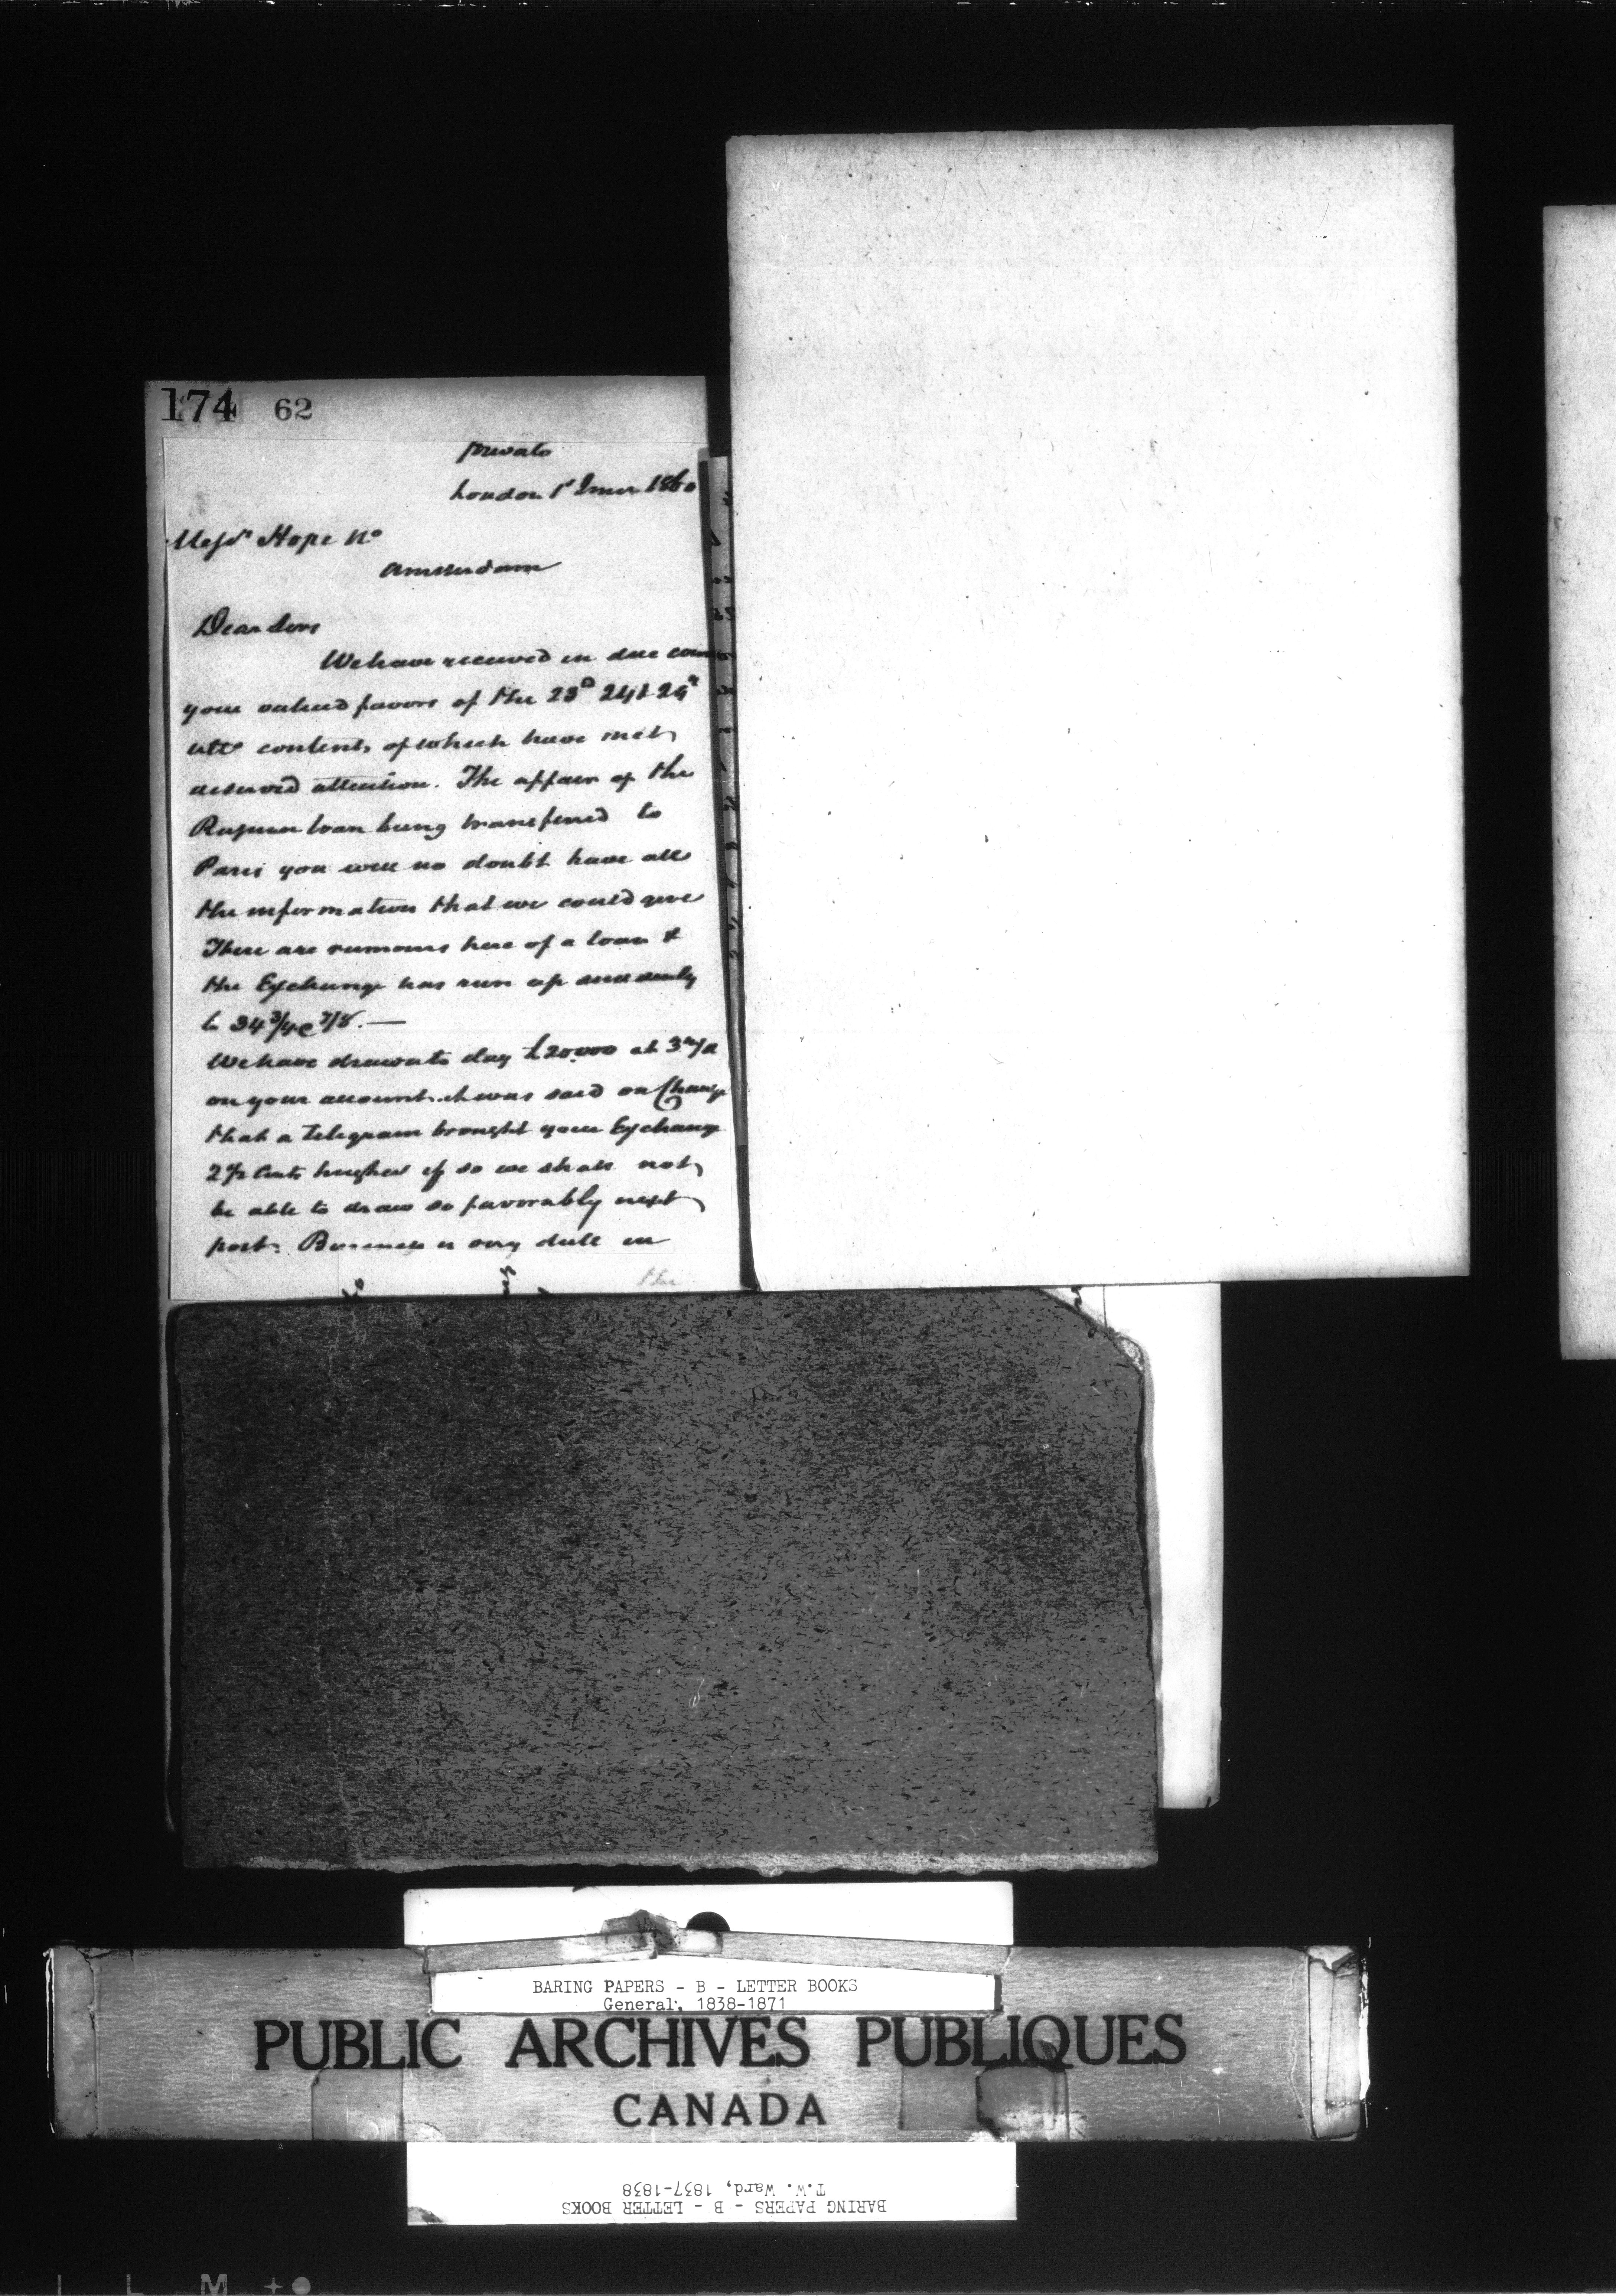 174 62
Private
London 1st June 1860
Messrs Hope &Co
Amsterdam
Dear Sirs
We have received in due cour
your valued favors of the 23d 24 & 29th
ulto contents of which have met
deserved attention. The affair of the
Russian loan being transferred to
Paris you will no doubt have all
the information that we could give
There are rumours here of a loan &
the Exchange has run up suddenly
to 34 3/4 @ 7/8. —
We have drawn to day £20.000 at 3 m/d
on your account. it was said on Change
that a Telegram brought your Exchange
2 1/2 Cents higher if so we shall not
be able to draw so favorably next
post. Business is very dull in
the
BARING PAPERS - B - LETTER BOOKS
General, 1838-1871
PUBLIC ARCHIVES PUBLIQUES
CANADA
BARING PAPERS - B - LETTER BOOKS
T.W. Ward, 1837-1838
L M +